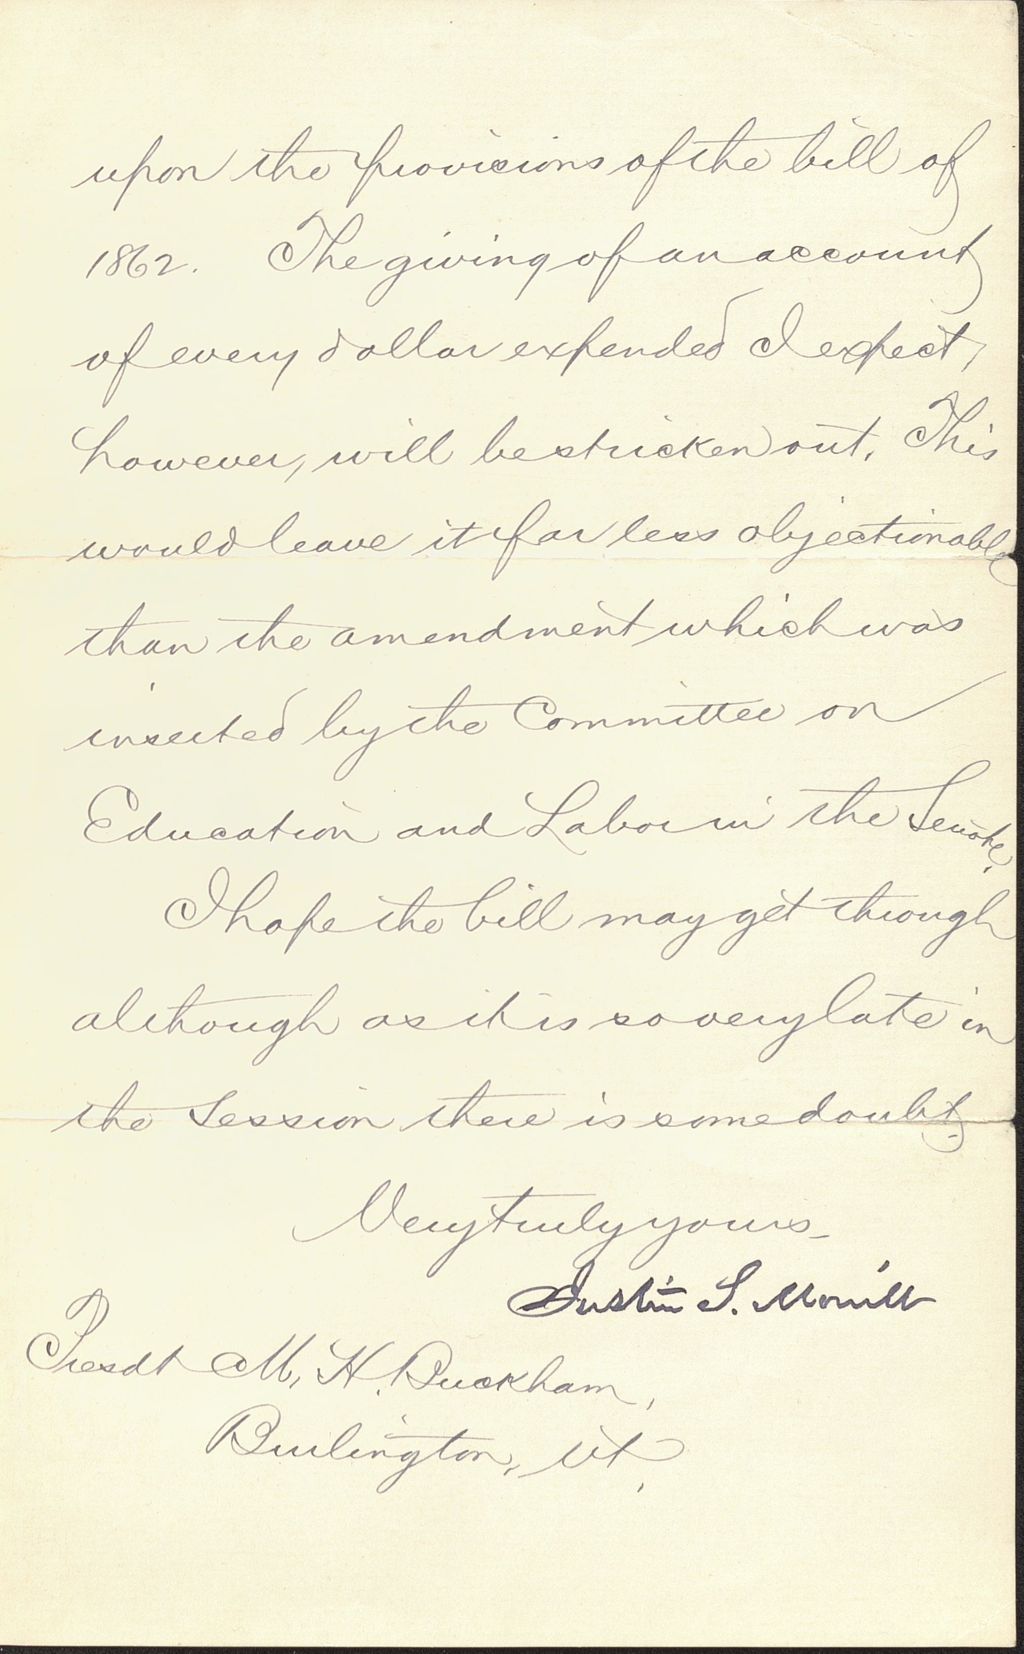 upon the provisions of the bill of
1862. The giving of an account
of every dollar expended I expect,
however, will be stricken out. This
would leave it far less objectionable
than the amendment which was
inserted by the Committee on
Education and Labor in the Senate.
I hope the bill may get through
although as it is so very late in
the Session there is some doubt.
Very truly yours
Justin S. Morrill
Presdt M. H. Buckham,
Burlington, Vt.